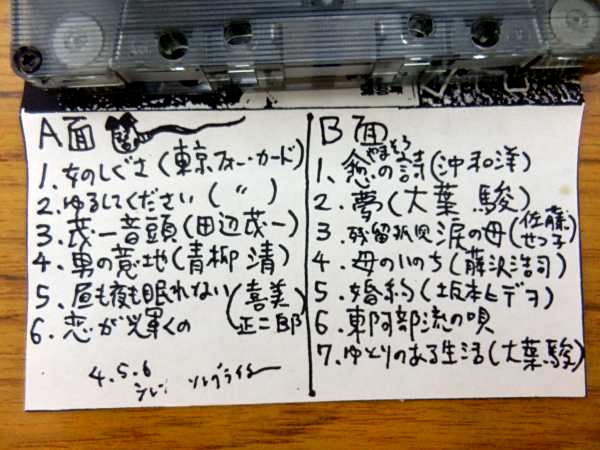 A面
1. 女のしぐさ(東京フォー・カード)
2. ゆるしてください(〃)
3. 茂一音頭(田辺茂一)
4. 男の意地(青柳 清)
5. 昼も夜も眠れない(喜美
6. 恋が輝くの 正二郎)
4.5.6
B面
やまそら
1. の詩(沖和洋)
2. 夢(大葉 駿)
3. 残留孤児 涙の母(佐藤せつ子)
4. 母のいのち(藤沢浩司)
5. 婚約(坂本ヒデヲ)
6. 東阿部流の唄
7. ゆとりのある生活(大葉駿)